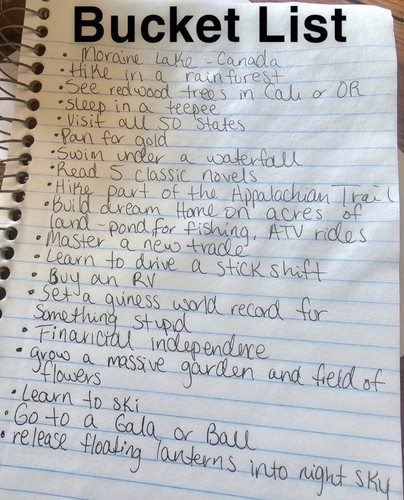 Bucket List
• Moraine Lake - Canada
• Hike in a rainforest
• See redwood trees in Cali or OR
• sleep in a teepee
• Visit all 50 States
• Pan for gold
• Swim under a waterfall
• Read 5 classic novels
• Hike part of the Appalachian Trail
• Build dream Home on acres of
land - pond for fishing, ATV rides
• Master a new trade
• Learn to drive a stick shift
• Buy an RV
• Set a guiness world record for
something stupid
• Financial independence
• grow a massive garden and field of
flowers
• Learn to ski
• Go to a Gala or Ball
• release floating lanterns into night sky